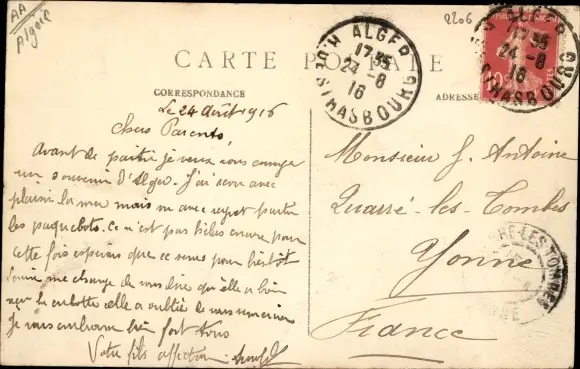 AA
Algérie
2206
CARTE POSTALE
CORRESPONDANCE
ADRESSE
ALGER
17 35
24 -8
16
R. DE STRASBOURG
ALGER
17 35
24 -8
16
STRASBOURG
10
Le 24 Août 1916
Chers Parents
Avant de partir je veux vous envoyer
un souvenir d'Alger. J'ai revu avec
plaisir la mer mais vu avec regret partir
les paquebots. Ce n'est pas hélas encore pour
cette fois espérons que ce sera pour bientôt
me charge de vous dire qu'elle a bien
reçu la culotte elle a oublié de vous remercier
Je vous embrasse bien fort tous
Votre fils affectionné
Monsieur J. Antoine
Quarré-les-Tombes
Yonne
France
-LES-TOMBES